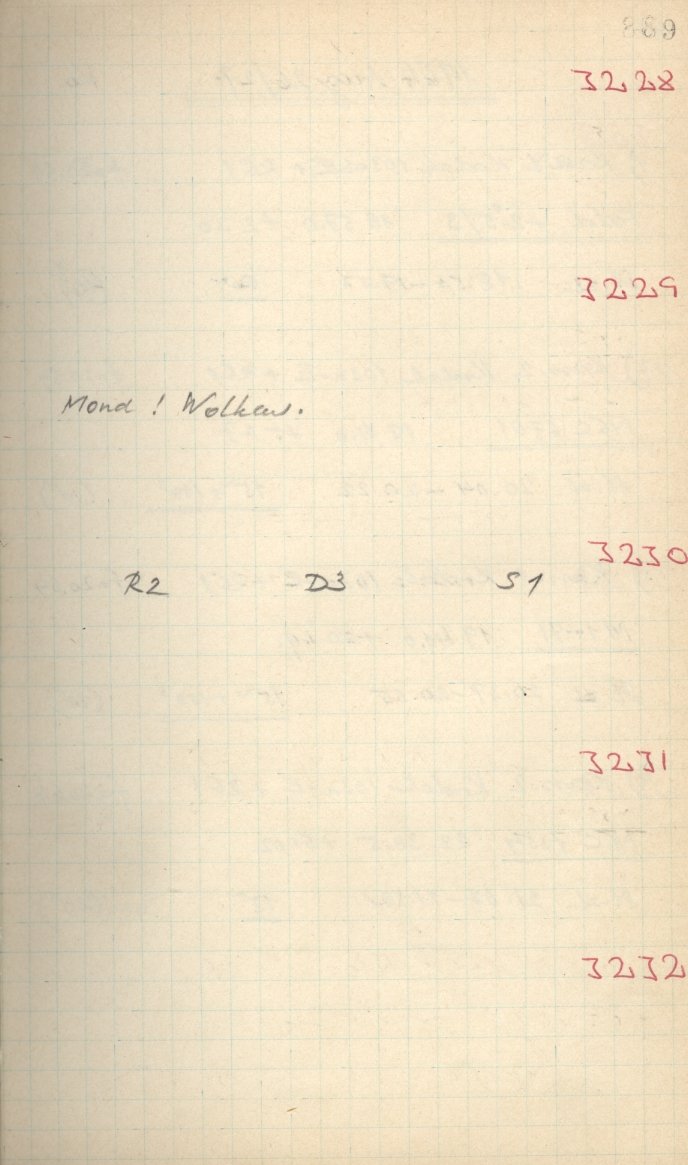 889
3228
3229
Mond ! Wolken.
3230
R2 D3 S1
3231
3232